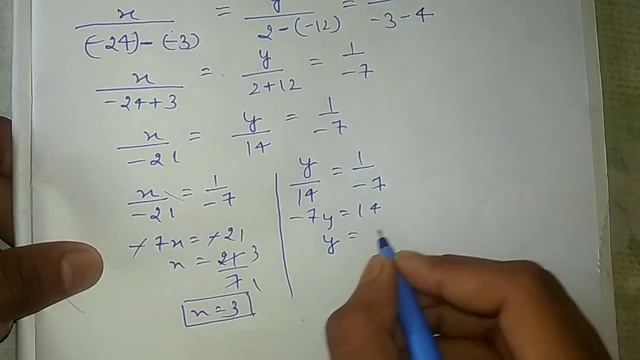 x/((-24)-(-3)) = y/(2-(-12)) = /(-3-4)
x/(-24+3) = y/(2+12) = 1/(-7)
x/(-21) = y/14 = 1/(-7)
x/(-21) = 1/(-7)
-7x = -21
x = 21/7 3 1
x=3
y/14 = 1/(-7)
-7y = 14
y =